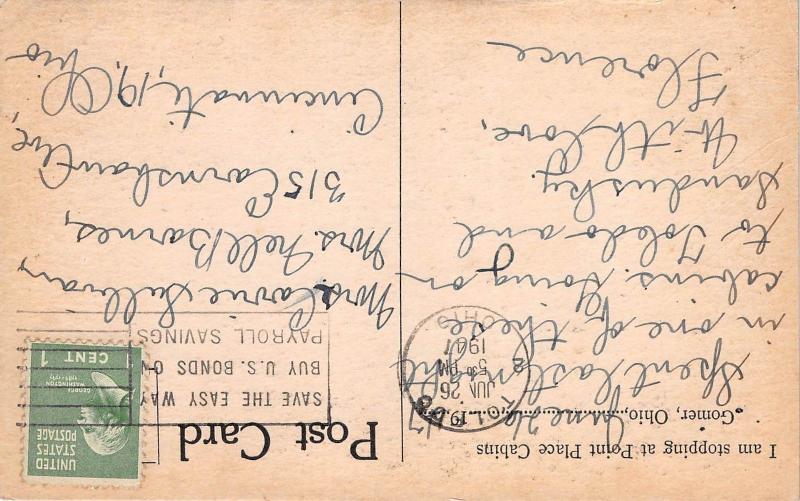 I am stopping at Point Place Cabins
Gomer, Ohio, June 26 1947
Spent last night
in one of these
cabins. Going on
to Toledo and
Sandusky.
With love,
Florence
Post Card
TOLEDO
JUN 26
5 30 PM
1947
OHIO
SAVE THE EASY WAY
BUY U.S. BONDS
PAYROLL SAVINGS
UNITED
STATES
POSTAGE
GEORGE
WASHINGTON
1 CENT
Mrs. Carrie Sullivan,
Mrs. Nell Barnes,
315 Earnshaw Ave,
Cincinnati, 19, Ohio